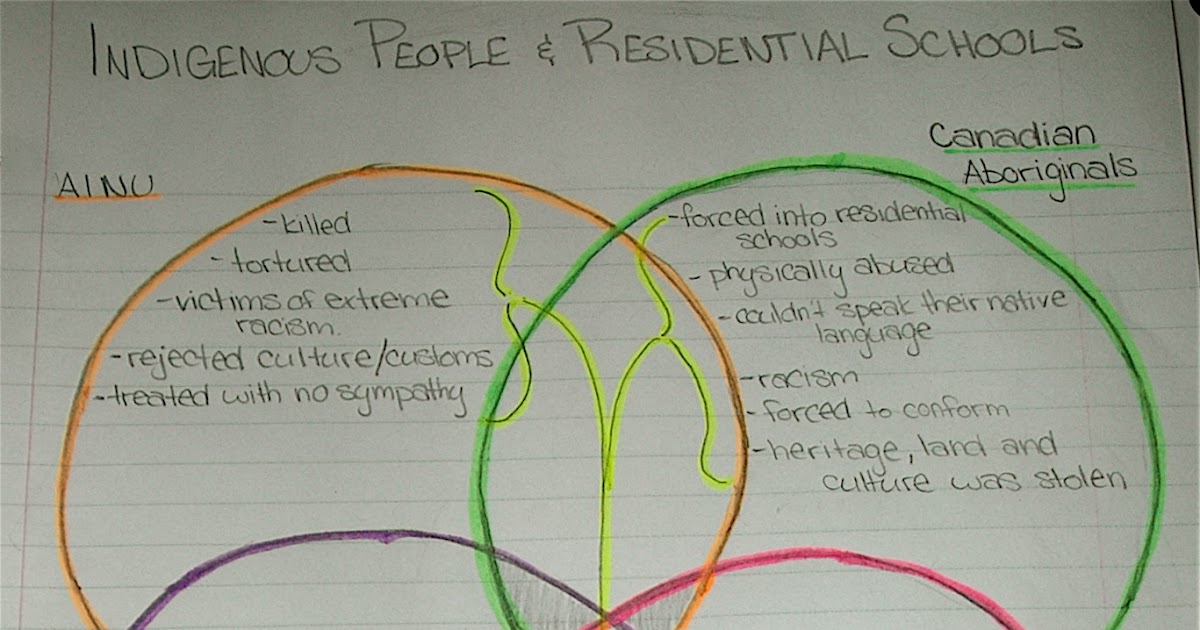 INDIGENOUS PEOPLE & RESIDENTIAL SCHOOLS
AINU
-killed
-tortured
-victims of extreme
racism.
-rejected culture/customs
-treated with no sympathy
Canadian
Aboriginals
-forced into residential
schools
-physically abused
-couldn't speak their native
language
-racism
-forced to conform
-heritage, land and
culture was stolen